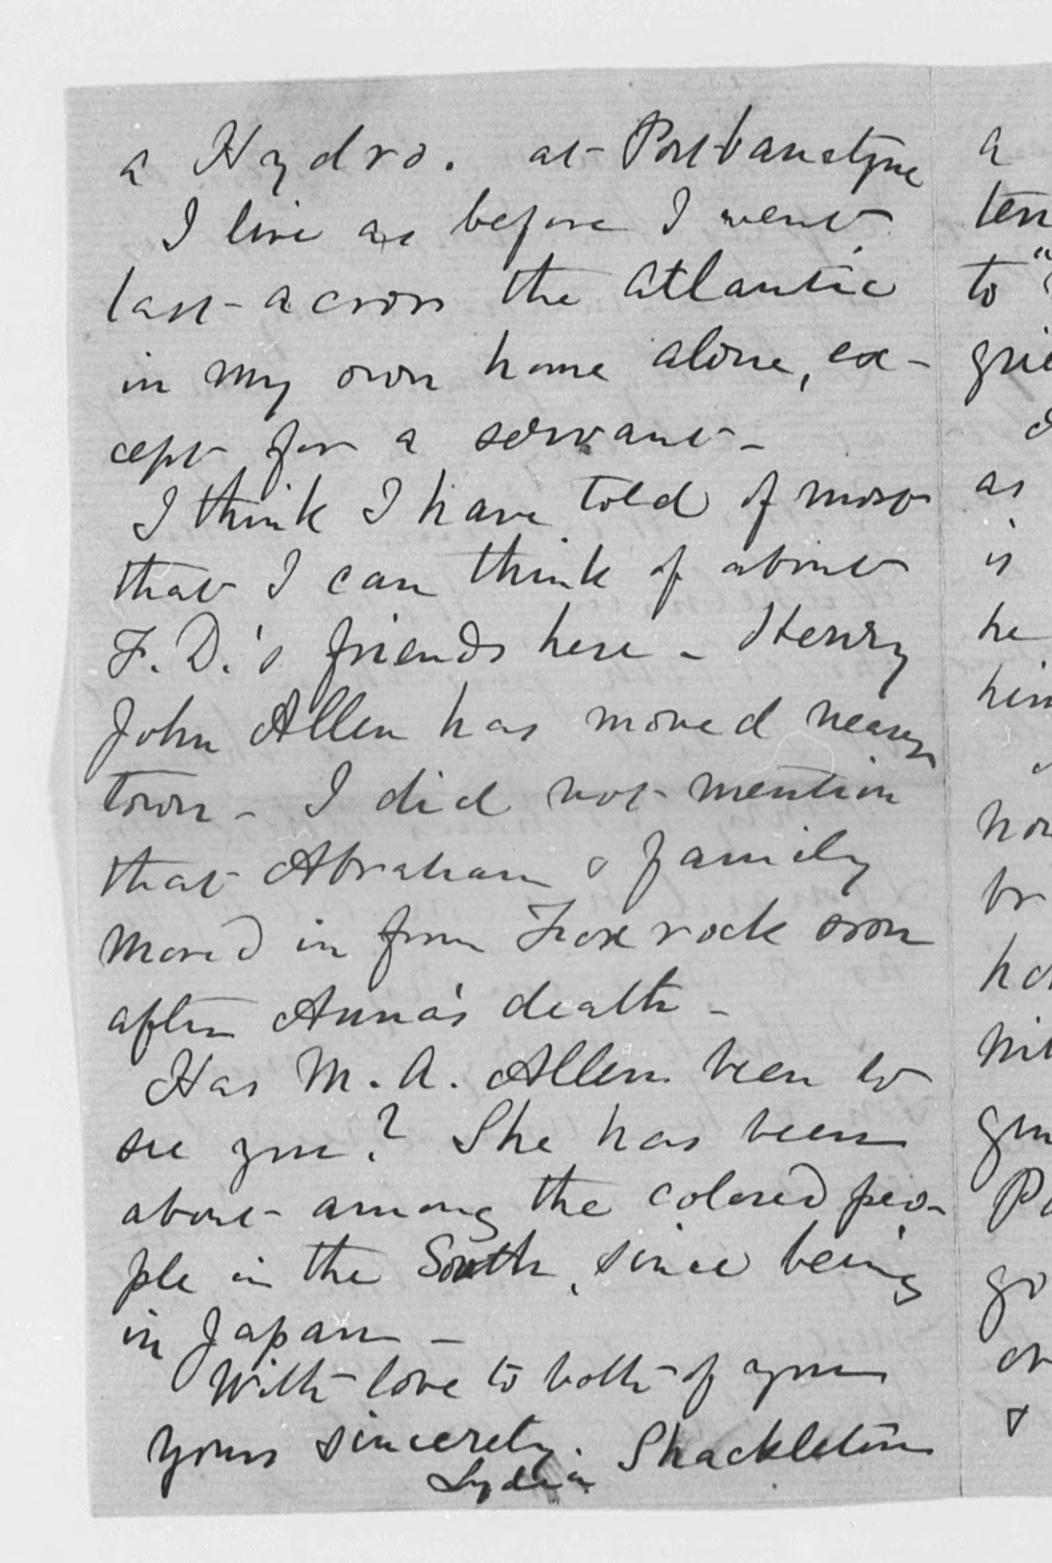 a Hydro. at Portbanatyne
I live as before I went
last across the Atlantic
in my own home alone, ex-
cept for a servant -
I think I have told of most
that I can think of about
F. D.'s friends here - Henry
John Allen has moved nearer
town - I did not mention
that Abraham & family
moved in from Foxrock soon
after Anna's death -
Has M. A. Allen been to
see you? She has been
about among the colored peo-
ple in the South, since being
in Japan -
With love to both of you
yours sincerely. Shackleton
Lydia
a
ten
to "
grie
as
is
he
him
now
br
ho
gon
Pa
go
or
&